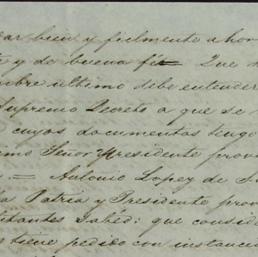 ar bien y fielmente ahor
te y de buena fé Que
bre ultimo debe entender
Supremo Decreto a que se
cuyos documentos tengo
mo Señor Presidente provi
s = Antonio Lopez de S
la Patria y Presidente prov
itantes Sabéd: que consid
s tiene pedido con instancia